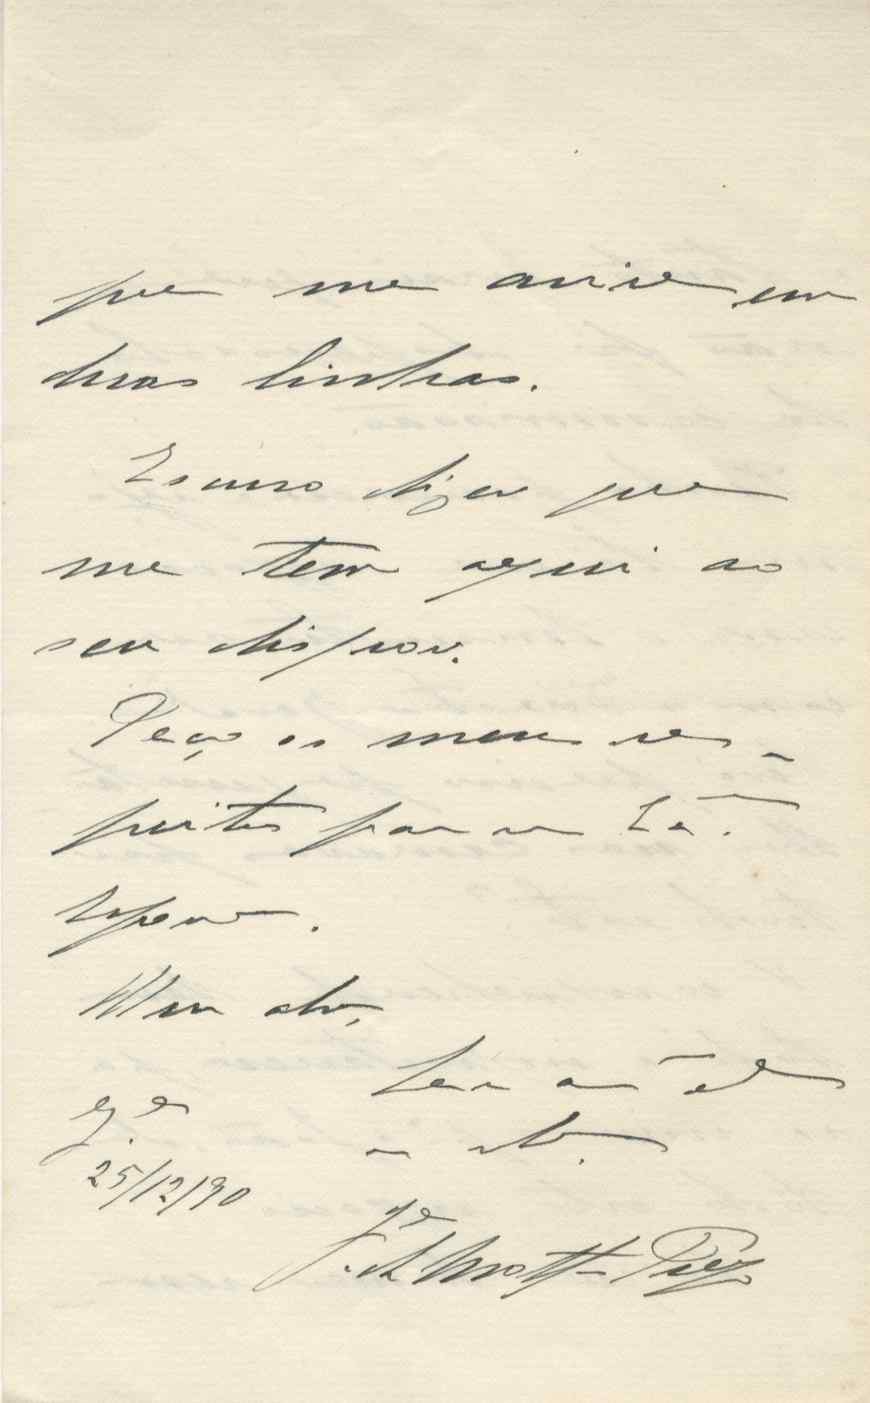 que me avise em
duas linhas.
Escuso dizer que
me tem aqui ao
seu dispor.
Peço os meus res-
peitos para a Exª.
Esposa.
Seu
25/12/90
F. da Motta Prego